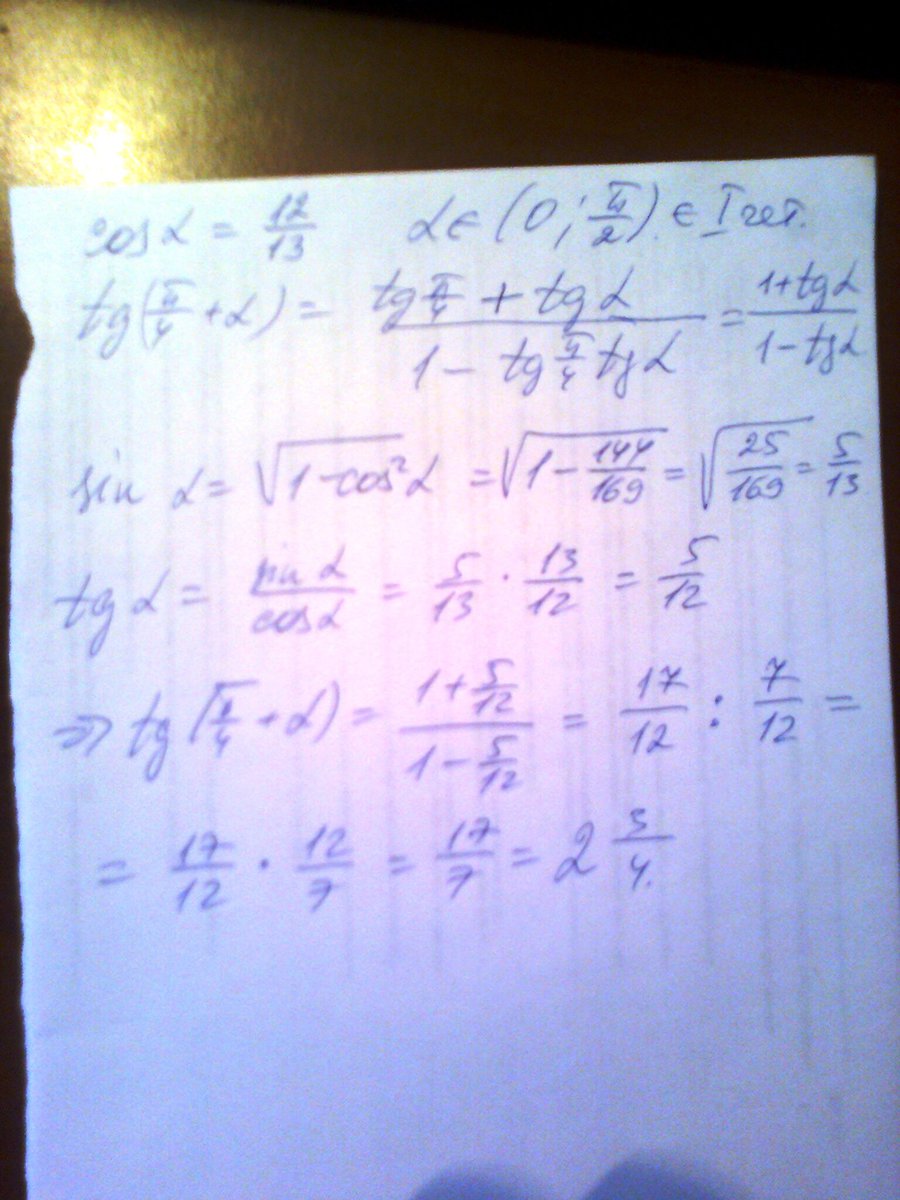 cos α = 12/13 α ∈ (0; π/2) ∈ I чет.
tg(π/4 + α) = (tg π/4 + tg α)/(1 - tg π/4 tg α) = (1 + tg α)/(1 - tg α)
sin α = √(1 - cos² α) = √(1 - 144/169) = √(25/169) = 5/13
tg α = sin α/cos α = 5/13 · 13/12 = 5/12
⇒ tg(π/4 + α) = (1 + 5/12)/(1 - 5/12) = 17/12 : 7/12 =
= 17/12 · 12/7 = 17/7 = 2 3/4.